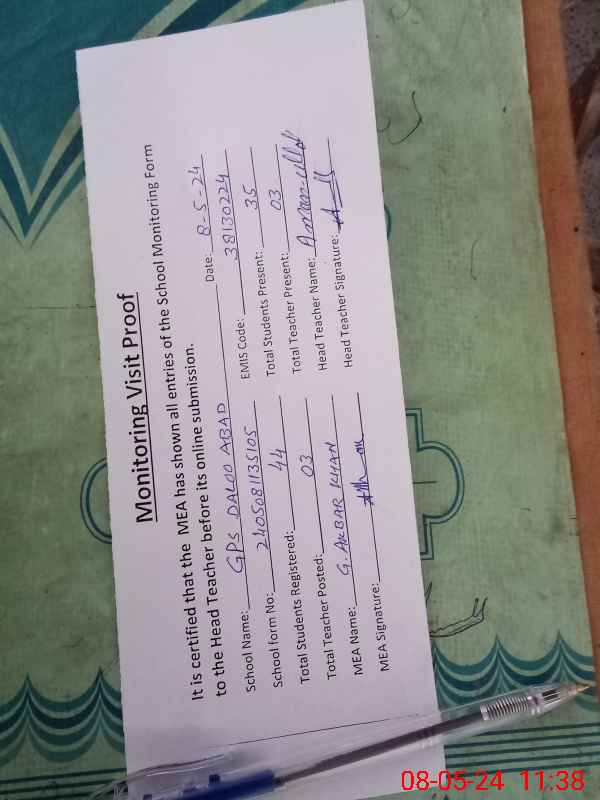 Monitoring Visit Proof
It is certified that the MEA has shown all entries of the School Monitoring Form
to the Head Teacher before its online submission.
School Name: GPS DALOO ABAD Date: 8-5-24
School form No: 2405081135105 EMIS Code: 38130224
Total Students Registered: 44 Total Students Present: 35
Total Teacher Posted: 03 Total Teacher Present: 03
MEA Name: G. AKBAR KHAN Head Teacher Name: Amanullah
MEA Signature: Head Teacher Signature:
08-05-24 11:38